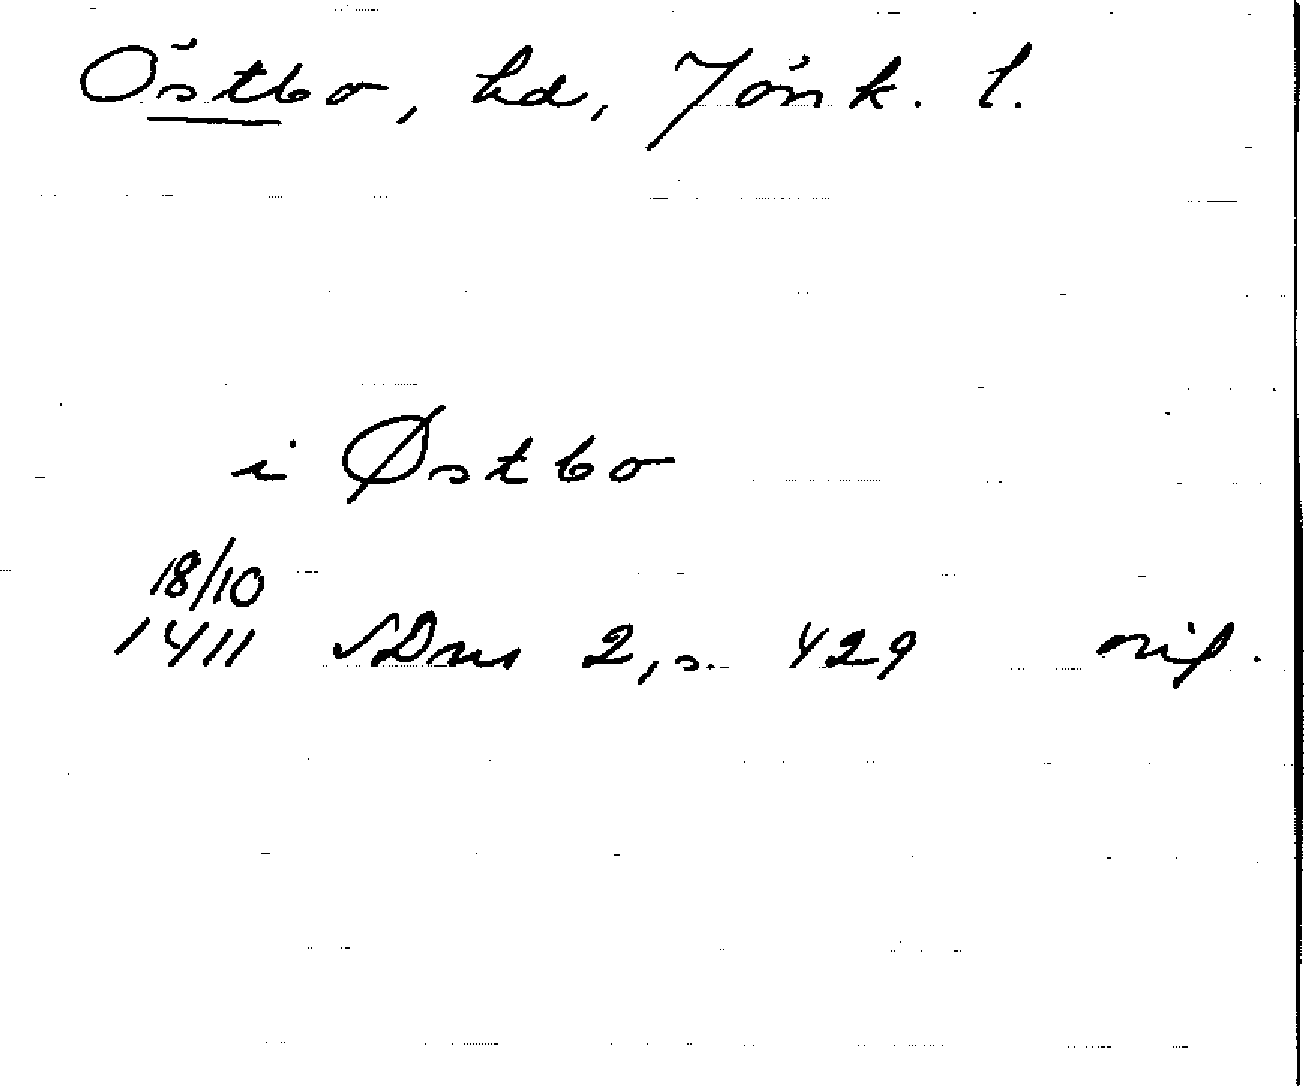 Östbo, hd, Jönk. l.
i Østbo
18/10
1411 SDns 2, s. 429 orig.